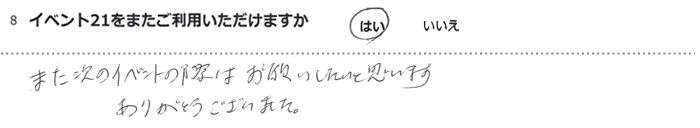 8 イベント21をまたご利用いただけますか はい いいえ
また次のイベントの際はお願いしたいと思います
ありがとうございました。